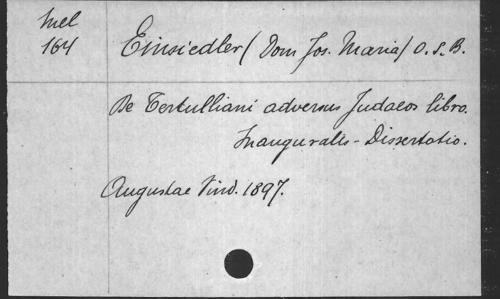 Mel
164
Einsiedler (Dom Jos. Maria) O.S.B.
De Tertulliani adversus Judaeos libro.
Inauguralis-Dissertatio.
Augustae Vind. 1897.